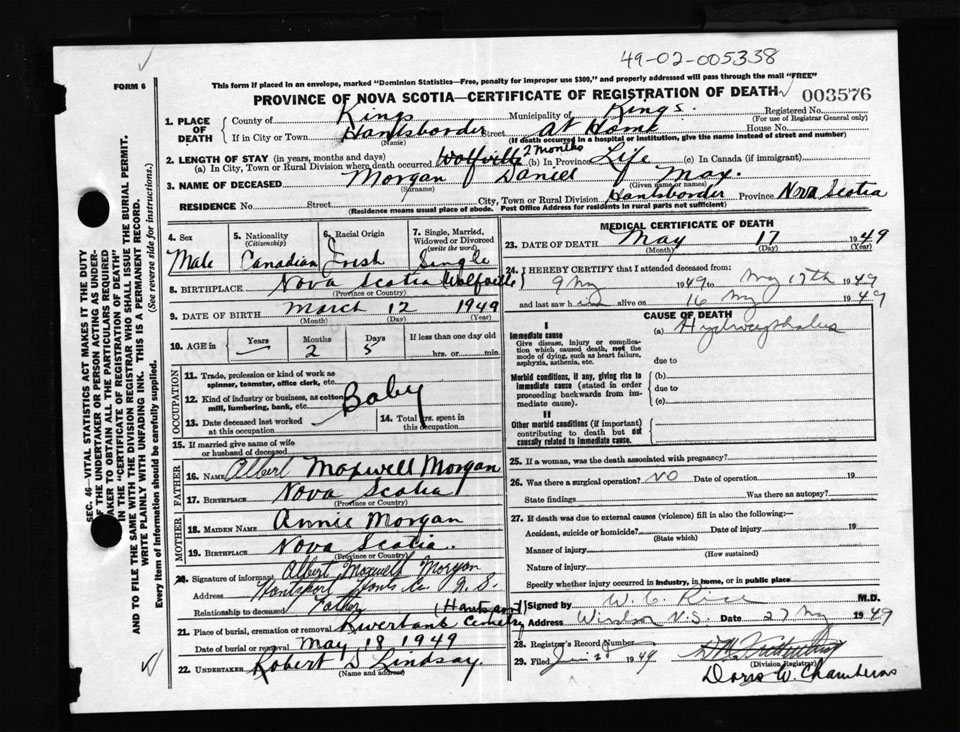 49-02-005338
FORM 6
This form if placed in an envelope, marked "Dominion Statistics—Free, penalty for improper use $300," and properly addressed will pass through the mail "FREE"
PROVINCE OF NOVA SCOTIA—CERTIFICATE OF REGISTRATION OF DEATH 003576
1. PLACE OF DEATH County of Kings Municipality of Kings. Registered No.
(For use of Registrar General only)
If in City or Town Hantsborder Street At Home House No.
(Name) (If death occurred in a hospital or institution, give the name instead of street and number)
2. LENGTH OF STAY (in years, months and days)
(a) In City, Town or Rural Division where death occurred Wolfville 2 months (b) In Province Life (c) In Canada (if immigrant)
3. NAME OF DECEASED Morgan Daniel Max.
(Surname) (Given name or names)
RESIDENCE No. Street City, Town or Rural Division Hantsborder Province Nova Scotia
(Residence means usual place of abode. Post Office Address for residents in rural parts not sufficient)
4. Sex Male
5. Nationality (Citizenship) Canadian
6. Racial Origin Irish
7. Single, Married, Widowed or Divorced (write the word) Single
8. BIRTHPLACE Nova Scotia (Wolfville)
(Province or Country)
9. DATE OF BIRTH March 12 1949
(Month) (Day) (Year)
10. AGE in Years Months Days If less than one day old
– 2 5 hrs. or min.
OCCUPATION
11. Trade, profession or kind of work as spinner, teamster, office clerk, etc.
12. Kind of industry or business, as cotton mill, lumbering, bank, etc. Baby
13. Date deceased last worked at this occupation
14. Total yrs. spent in this occupation
15. If married give name of wife or husband of deceased
FATHER
16. NAME Albert Maxwell Morgan
17. BIRTHPLACE Nova Scotia
(Province or Country)
MOTHER
18. MAIDEN NAME Annie Morgan
19. BIRTHPLACE Nova Scotia.
(Province or Country)
20. Signature of informant Albert Maxwell Morgan
Address Hantsport Hants Co N.S.
Relationship to deceased Father
21. Place of burial, cremation or removal Riverbank Cemetery (Hantsport)
Date of burial or removal May 18 1949
22. UNDERTAKER Robert D Lindsay.
(Name and address)
MEDICAL CERTIFICATE OF DEATH
23. DATE OF DEATH May 17 1949
(Month) (Day) (Year)
24. I HEREBY CERTIFY that I attended deceased from:
9 My 1949 to My 17th 1949
and last saw h im alive on 16 My 1949
CAUSE OF DEATH
I
Immediate cause (a) Hydrocephalus
Give disease, injury or complication which caused death, not the mode of dying, such as heart failure, asphyxia, asthenia, etc.
due to
Morbid conditions, if any, giving rise to immediate cause (stated in order proceeding backwards from immediate cause).
(b)
due to
(c)
II
Other morbid conditions (if important) contributing to death but not causally related to immediate cause.
25. If a woman, was the death associated with pregnancy?
26. Was there a surgical operation? NO Date of operation 19
State findings Was there an autopsy?
27. If death was due to external causes (violence) fill in also the following:—
Accident, suicide or homicide? Date of injury 19
(State which)
Manner of injury
(How sustained)
Nature of injury
Specify whether injury occurred in industry, in home, or in public place
Signed by W. C. Rice M.D.
Address Windsor N.S. Date 27 My 1949
28. Registrar's Record Number
29. Filed 1949
(Division Registrar)
Doris W. Chambers
SEC. 46—VITAL STATISTICS ACT MAKES IT THE DUTY
OF THE UNDERTAKER OR PERSON ACTING AS UNDERTAKER TO OBTAIN ALL THE PARTICULARS REQUIRED
IN THE "CERTIFICATE OF REGISTRATION OF DEATH"
AND TO FILE THE SAME WITH THE DIVISION REGISTRAR WHO SHALL ISSUE THE BURIAL PERMIT.
WRITE PLAINLY WITH UNFADING INK. THIS IS A PERMANENT RECORD.
Every item of Information should be carefully supplied. (See reverse side for instructions.)